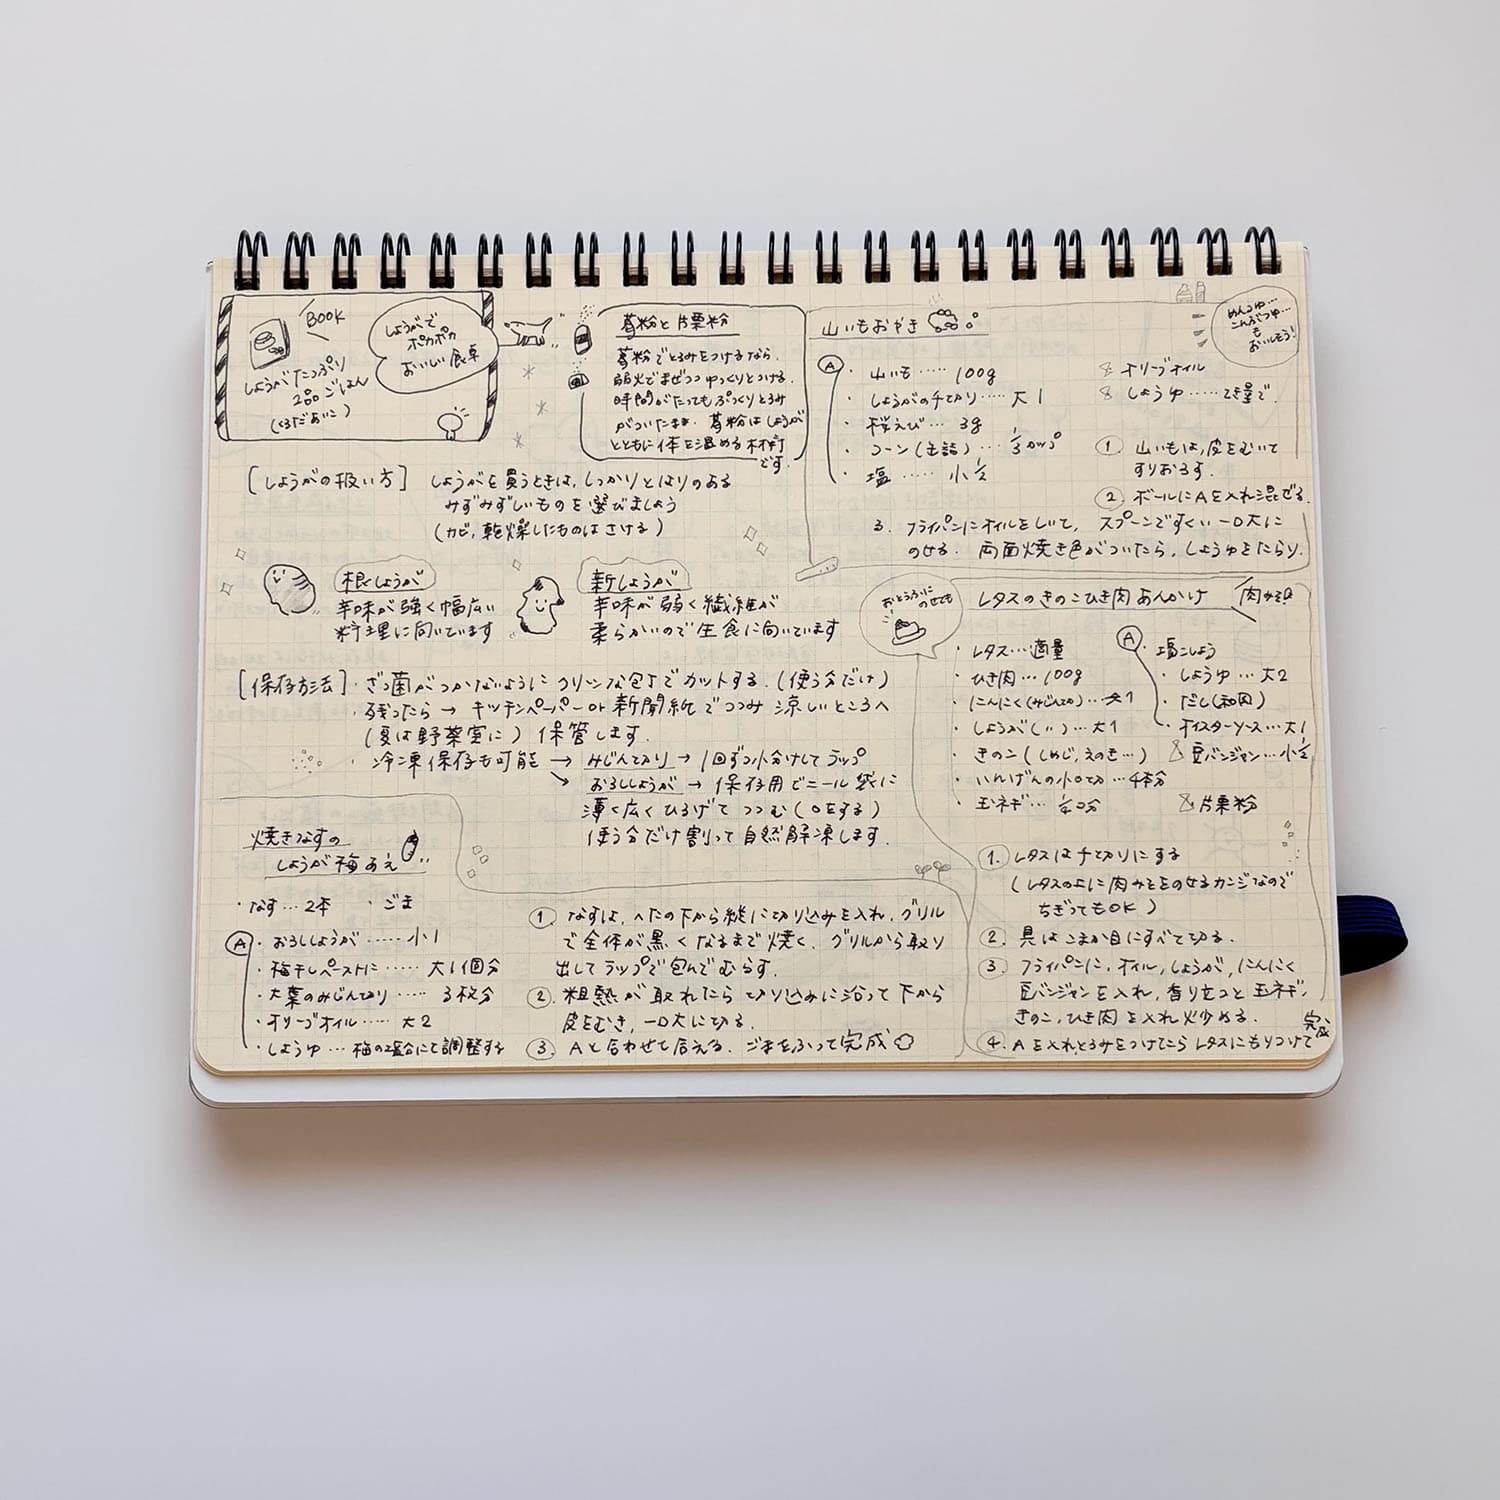 BOOK
しょうがたっぷり
2品ごはん
(くろだあいこ)
しょうがで
ポカポカ
おいしい食卓
葛粉と片栗粉
葛粉でとろみをつけるなら、
弱火でまぜつつゆっくりとつける。
時間がたってもぷっくりとろみ
がついたまま。葛粉はしょうが
とともに体を温める材料
です。
[しょうがの扱い方] しょうがを買うときは、しっかりとはりのある
みずみずしいものを選びましょう
(カビ、乾燥したものはさける)
根しょうが
辛味が強く幅広い
料理に向いています
新しょうが
辛味が弱く繊維が
柔らかいので生食に向いています
[保存方法]・ざっ菌がつかないようにクリーンな包丁でカットする。(使う分だけ)
・残ったら→キッチンペーパーor新聞紙でつつみ涼しいところへ
(夏は野菜室に)保管します。
・冷凍保存も可能→みじん切り→1回ずつ小分けしてラップ
おろししょうが→保存用ビニール袋に
薄く広くひろげてつつむ(0をする)
使う分だけ割って自然解凍します。
焼きなすの
しょうが梅あえ
・なす…2本 ・ごま
Ⓐ・おろししょうが……小1
・梅干しペーストに……大1 1個分
・大葉のみじん切り……3枚分
・オリーブオイル……大2
・しょうゆ…梅の塩分にて調整する
① なすは、へたの下から縦に切り込みを入れ、グリル
で全体が黒くなるまで焼く。グリルから取り
出してラップで包んでむらす。
② 粗熱が取れたら切り込みに沿って下から
皮をむき、一口大に切る。
③ Aと合わせて和える。ごまをふって完成
山いもおやき
Ⓐ・山いも……100g
・しょうがの千切り……大1
・桜えび…3g
・コーン(缶詰)…1/3カップ
・塩……小1/2
& オリーブオイル
& しょうゆ……てき量で
めんつゆ…
こんぶつゆ…
も
おいしそう!
① 山いもは、皮をむいて
すりおろす。
② ボールにAを入れ混ぜる。
3. フライパンにオイルをしいて、スプーンですくい一口大に
のせる。両面焼き色がついたら、しょうゆをたらり。
おとうふに
のせても
レタスのきのこひき肉あんかけ
肉みそ
・レタス…適量
・ひき肉…100g
・にんにく(みじん切)…大1
・しょうが(〃)…大1
・きのこ(しめじ、えのき…)
・いんげんの小口切…4本分
・玉ネギ…1/4コ分
Ⓐ・塩こしょう
・しょうゆ…大2
・だし(和風)
・オイスターソース…大1
& 豆バンジャン…小1/2
& 片栗粉
①. レタスは千切りにする
(レタスの上に肉みそをのせるカンジなので
ちぎってもOK)
② 具はこまか目にすべて切る。
③ フライパンに、オイル、しょうが、にんにく
豆バンジャンを入れ、香り立つと玉ネギ、
きのこ、ひき肉を入れ火炒める。
④. Aを入れとろみをつけてたらレタスにもりつけて
完成